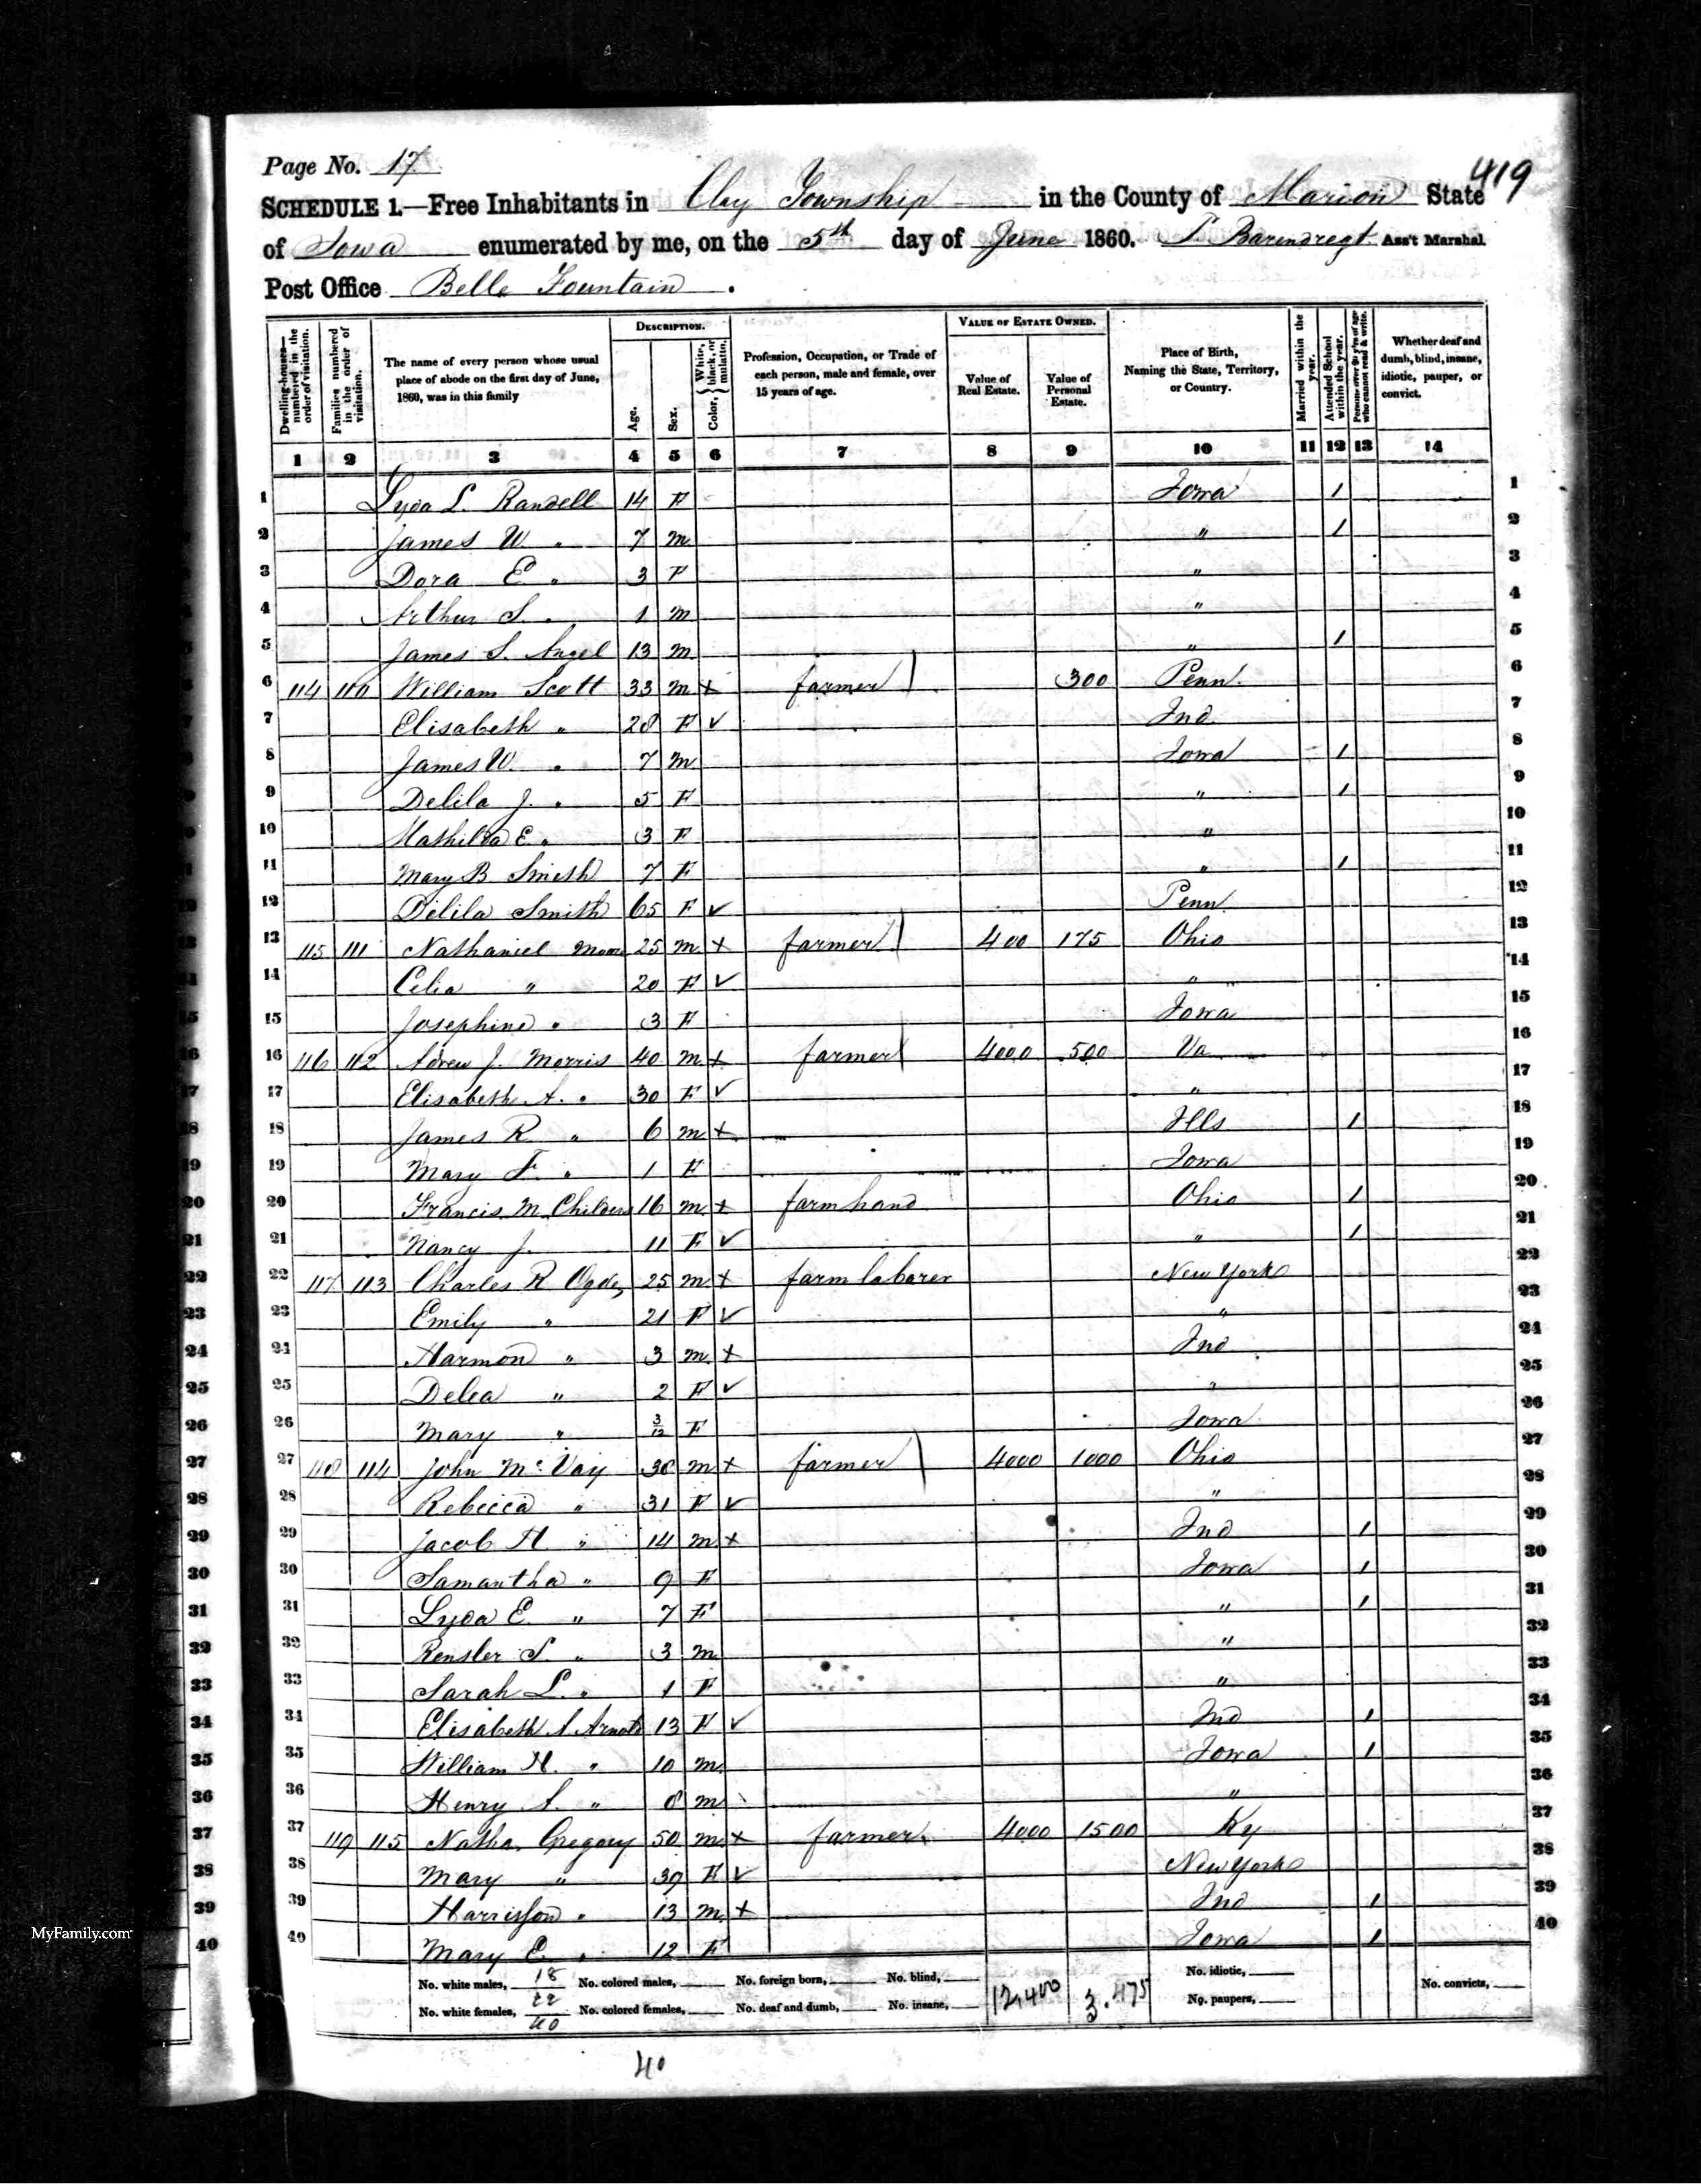 419
Page No. 17.
SCHEDULE 1.—Free Inhabitants in Clay Township in the County of Marion State
of Iowa enumerated by me, on the 5th day of June 1860. Barendregt Ass't Marshal
Post Office Belle Fountain .
DESCRIPTION. VALUE OF ESTATE OWNED.
Dwelling-houses—numbered in the order of visitation.
Families numbered in the order of visitation.
The name of every person whose usual place of abode on the first day of June, 1860, was in this family
Age.
Sex.
Color, { White, black, or mulatto.
Profession, Occupation, or Trade of each person, male and female, over 15 years of age.
Value of Real Estate.
Value of Personal Estate.
Place of Birth, Naming the State, Territory, or Country.
Married within the year.
Attended School within the year.
Persons over 20 y'rs of age who cannot read & write.
Whether deaf and dumb, blind, insane, idiotic, pauper, or convict.
1 2 3 4 5 6 7 8 9 10 11 12 13 14
1 Lyda L. Randell 14 F Iowa 1 1
2 James W. " 7 m " 1 2
3 Dora E " 3 F " 3
4 Arthur S. " 1 m " 4
5 James S. Angel 13 m " 1 5
6 114 110 William Scott 33 m + farmer 300 Penn. 6
7 Elisabeth " 28 F ✓ Ind 7
8 James W. " 7 m Iowa 1 8
9 Delila J. " 5 F " 1 9
10 Mathilda E. " 3 F " 10
11 Mary B Smith 7 F " 1 11
12 Delila Smith 65 F ✓ Penn 12
13 115 111 Nathaniel Moore 25 m + farmer 400 175 Ohio 13
14 Celia " 20 F ✓ " 14
15 Josephine " 3 F Iowa 15
16 116 112 Adrew J. Morris 40 m + farmer 4000 500 Va 16
17 Elisabeth A. " 30 F ✓ " 17
18 James R. " 6 m + Ills 1 18
19 Mary F. " 1 F Iowa 19
20 Francis M. Childers 16 m + farm hand Ohio 1 20
21 Nancy J. 11 F ✓ " 1 21
22 117 113 Charles R Ogden 25 m + farm laborer New York 22
23 Emily " 21 F ✓ " 23
24 Harmon " 3 m + Ind 24
25 Delea " 2 F ✓ " 25
26 Mary " 3/12 F Iowa 26
27 118 114 John McVay 38 m + farmer 4000 1000 Ohio 27
28 Rebecca " 31 F ✓ " 28
29 Jacob H. " 14 m + Ind 1 29
30 Samantha " 9 F Iowa 1 30
31 Lyda E. " 7 F " 1 31
32 Rensler S. " 3 m " 32
33 Sarah L. " 1 F " 33
34 Elisabeth A Arnold 13 F ✓ Ind 1 34
35 William H. " 10 m Iowa 1 35
36 Henry A. " 8 m " 36
37 119 115 Natha. Gregory 50 m + farmer. 4000 1500 Ky 37
38 Mary " 39 F ✓ New York 38
39 Harrisson " 13 m + Ind 1 39
40 Mary E. " 12 F Iowa 1 40
No. white males, 18 No. colored males, No. foreign born, No. blind, No. idiotic,
No. white females, 22 No. colored females, No. deaf and dumb, No. insane, 12,400 3.475 No. paupers, No. convicts,
40
40
MyFamily.com